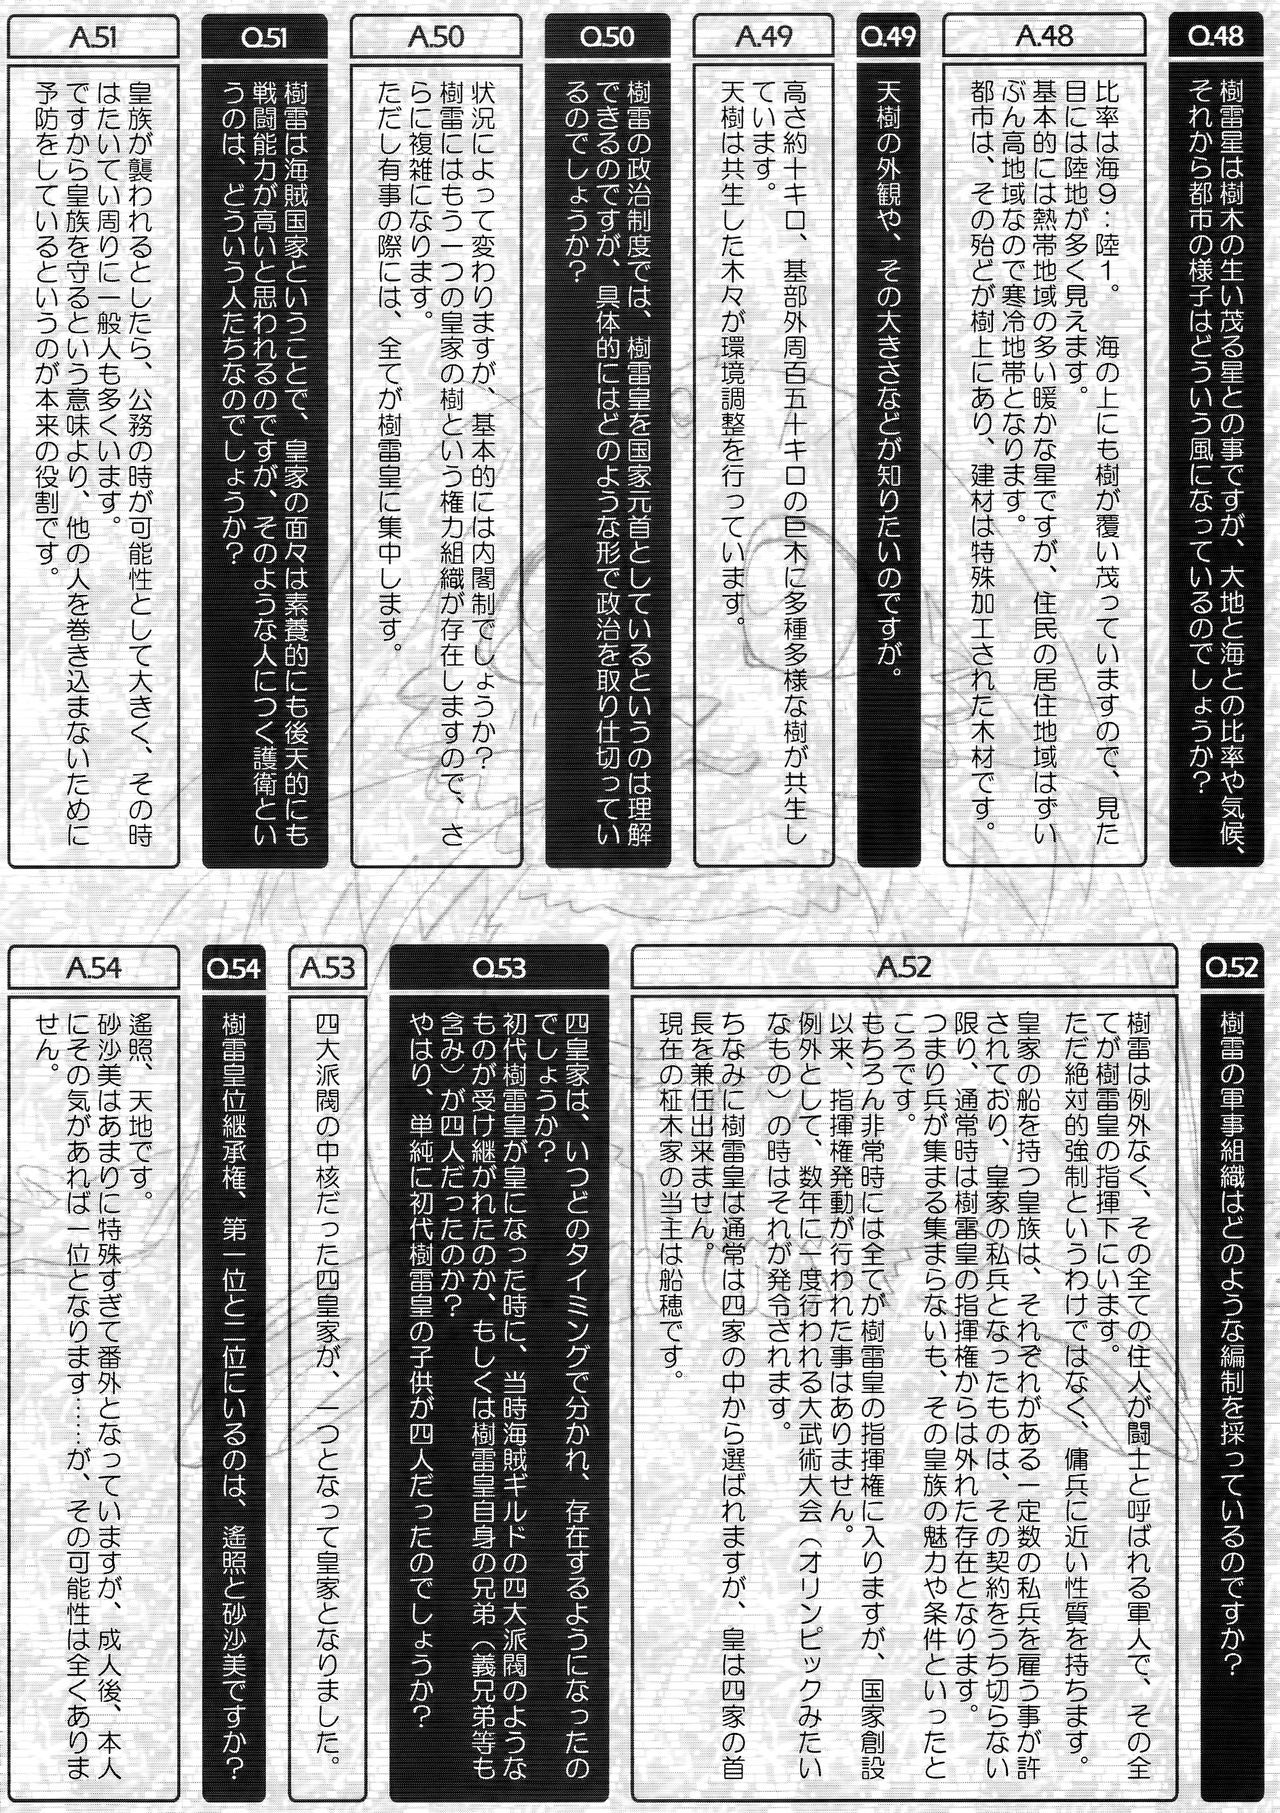 Q.48
樹雷星は樹木の生い茂る星との事ですが、大地と海との比率や気候、
それから都市の様子はどういう風になっているのでしょうか？
A.48
比率は海９：陸１。　海の上にも樹が覆い茂っていますので、見た
目には陸地が多く見えます。
基本的には熱帯地域の多い暖かな星ですが、住民の居住地域はずい
ぶん高地域なので寒冷地帯となります。
都市は、その殆どが樹上にあり、建材は特殊加工された木材です。
Q.49
天樹の外観や、その大きさなどが知りたいのですが。
A.49
高さ約十キロ、基部外周百五十キロの巨木に多種多様な樹が共生し
ています。
天樹は共生した木々が環境調整を行っています。
Q.50
樹雷の政治制度では、樹雷皇を国家元首としているというのは理解
できるのですが、具体的にはどのような形で政治を取り仕切ってい
るのでしょうか？
A.50
状況によって変わりますが、基本的には内閣制でしょうか？
樹雷にはもう一つの皇家の樹という権力組織が存在しますので、さ
らに複雑になります。
ただし有事の際には、全てが樹雷皇に集中します。
Q.51
樹雷は海賊国家ということで、皇家の面々は素養的にも後天的にも
戦闘能力が高いと思われるのですが、そのような人につく護衛とい
うのは、どういう人たちなのでしょうか？
A.51
皇族が襲われるとしたら、公務の時が可能性として大きく、その時
はたいてい周りに一般人も多くいます。
ですから皇族を守るという意味より、他の人を巻き込まないために
予防をしているというのが本来の役割です。
Q.52
樹雷の軍事組織はどのような編制を採っているのですか？
A.52
樹雷は例外なく、その全ての住人が闘士と呼ばれる軍人で、その全
てが樹雷皇の指揮下にいます。
ただ絶対的強制というわけではなく、傭兵に近い性質を持ちます。
皇家の船を持つ皇族は、それぞれがある一定数の私兵を雇う事が許
されており、皇家の私兵となったものは、その契約をうち切らない
限り、通常時は樹雷皇の指揮権からは外れた存在となります。
つまり兵が集まる集まらないも、その皇族の魅力や条件といったと
ころです。
もちろん非常時には全てが樹雷皇の指揮権に入りますが、国家創設
以来、指揮権発動が行われた事はありません。
例外として、数年に一度行われる大武術大会（オリンピックみたい
なもの）の時はそれが発令されます。
ちなみに樹雷皇は通常は四家の中から選ばれますが、皇は四家の首
長を兼任出来ません。
現在の柾木家の当主は船穂です。
Q.53
四皇家は、いつどのタイミングで分かれ、存在するようになったの
でしょうか？
初代樹雷皇が皇になった時に、当時海賊ギルドの四大派閥のような
ものが受け継がれたのか、もしくは樹雷皇自身の兄弟（義兄弟等も
含み）が四人だったのか？
やはり、単純に初代樹雷皇の子供が四人だったのでしょうか？
A.53
四大派閥の中核だった四皇家が、一つとなって皇家となりました。
Q.54
樹雷皇位継承権、第一位と二位にいるのは、遙照と砂沙美ですか？
A.54
遙照、天地です。
砂沙美はあまりに特殊すぎて番外となっていますが、成人後、本人
にその気があれば一位となります……が、その可能性は全くありま
せん。